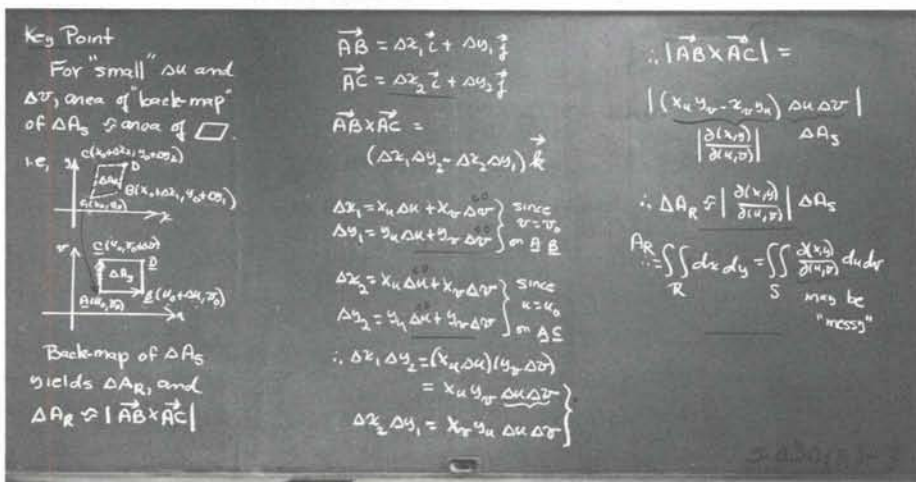 Key Point
For "small" Δu and
Δv, area of "back-map"
of ΔA_S ≈ area of ▱.
i.e, y C(x₀+Δx₂, y₀+Δy₂)
D
ΔA_R
B(x₀+Δx₁, y₀+Δy₁)
A(x₀,y₀)
x
v C(u₀,v₀+Δv)
D
ΔA_S
A(u₀,v₀) B(u₀+Δu,v₀)
u
Back-map of ΔA_S
yields ΔA_R, and
ΔA_R ≈ |AB×AC|
AB = Δx₁ i + Δy₁ j
AC = Δx₂ i + Δy₂ j
AB×AC =
(Δx₁Δy₂-Δx₂Δy₁) k
Δx₁=x_uΔu+x_vΔv } since
Δy₁=y_uΔu+y_vΔv v=v₀ on AB
Δx₂=x_uΔu+x_vΔv } since
Δy₂=y_uΔu+y_vΔv u=u₀ on AC
∴ Δx₁Δy₂=(x_uΔu)(y_vΔv)
= x_u y_v ΔuΔv
Δx₂Δy₁ = x_v y_u ΔuΔv }
∴ |AB×AC| =
|(x_u y_v - x_v y_u) ΔuΔv|
|∂(x,y)/∂(u,v)| ΔA_S
∴ ΔA_R ≈ |∂(x,y)/∂(u,v)| ΔA_S
A_R
∴=∬_R dx dy = ∬_S ∂(x,y)/∂(u,v) du dv
may be
"messy"